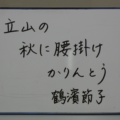 立山の
秋に腰掛け
かりんとう
鶴濱節子